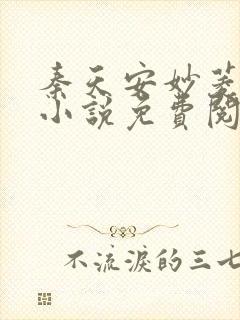 秦天安妙菱
小说免费阅
不流淚的三七